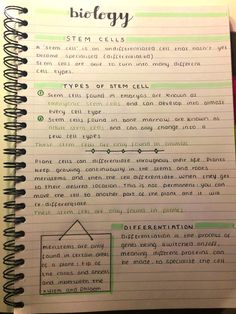 biology
STEM CELLS
A 'stem cell' is an undifferentiated cell that hasn't yet
become specialised (differentiated)
Stem cells are able to turn into many different
cell types.
TYPES OF STEM CELL
① Stem cells found in embryos are known as
embryonic stem cells and can develop into almost
every cell type
② Stem cells found in bone marrow are known as
adult stem cells and can only change into a
few cell types
These stem cells are only found in animals
Plant cells can differentiate throughout their life. Plants
keep growing continuously in the stems and roots
meristems and then the cell differentiates when they get
to their desired location. This is not permanent: you can
move the cell to another part of the plant and it will
re-differentiate.
These stem cells are only found in plants
meristems are only
found in certain areas
of a plant: tip of
the roots and shoots
and inbetween the
xylem and phloem
DIFFERENTIATION
Differentiation is the process of
genes being switched on/off,
meaning different proteins can
be made to specialise the cell